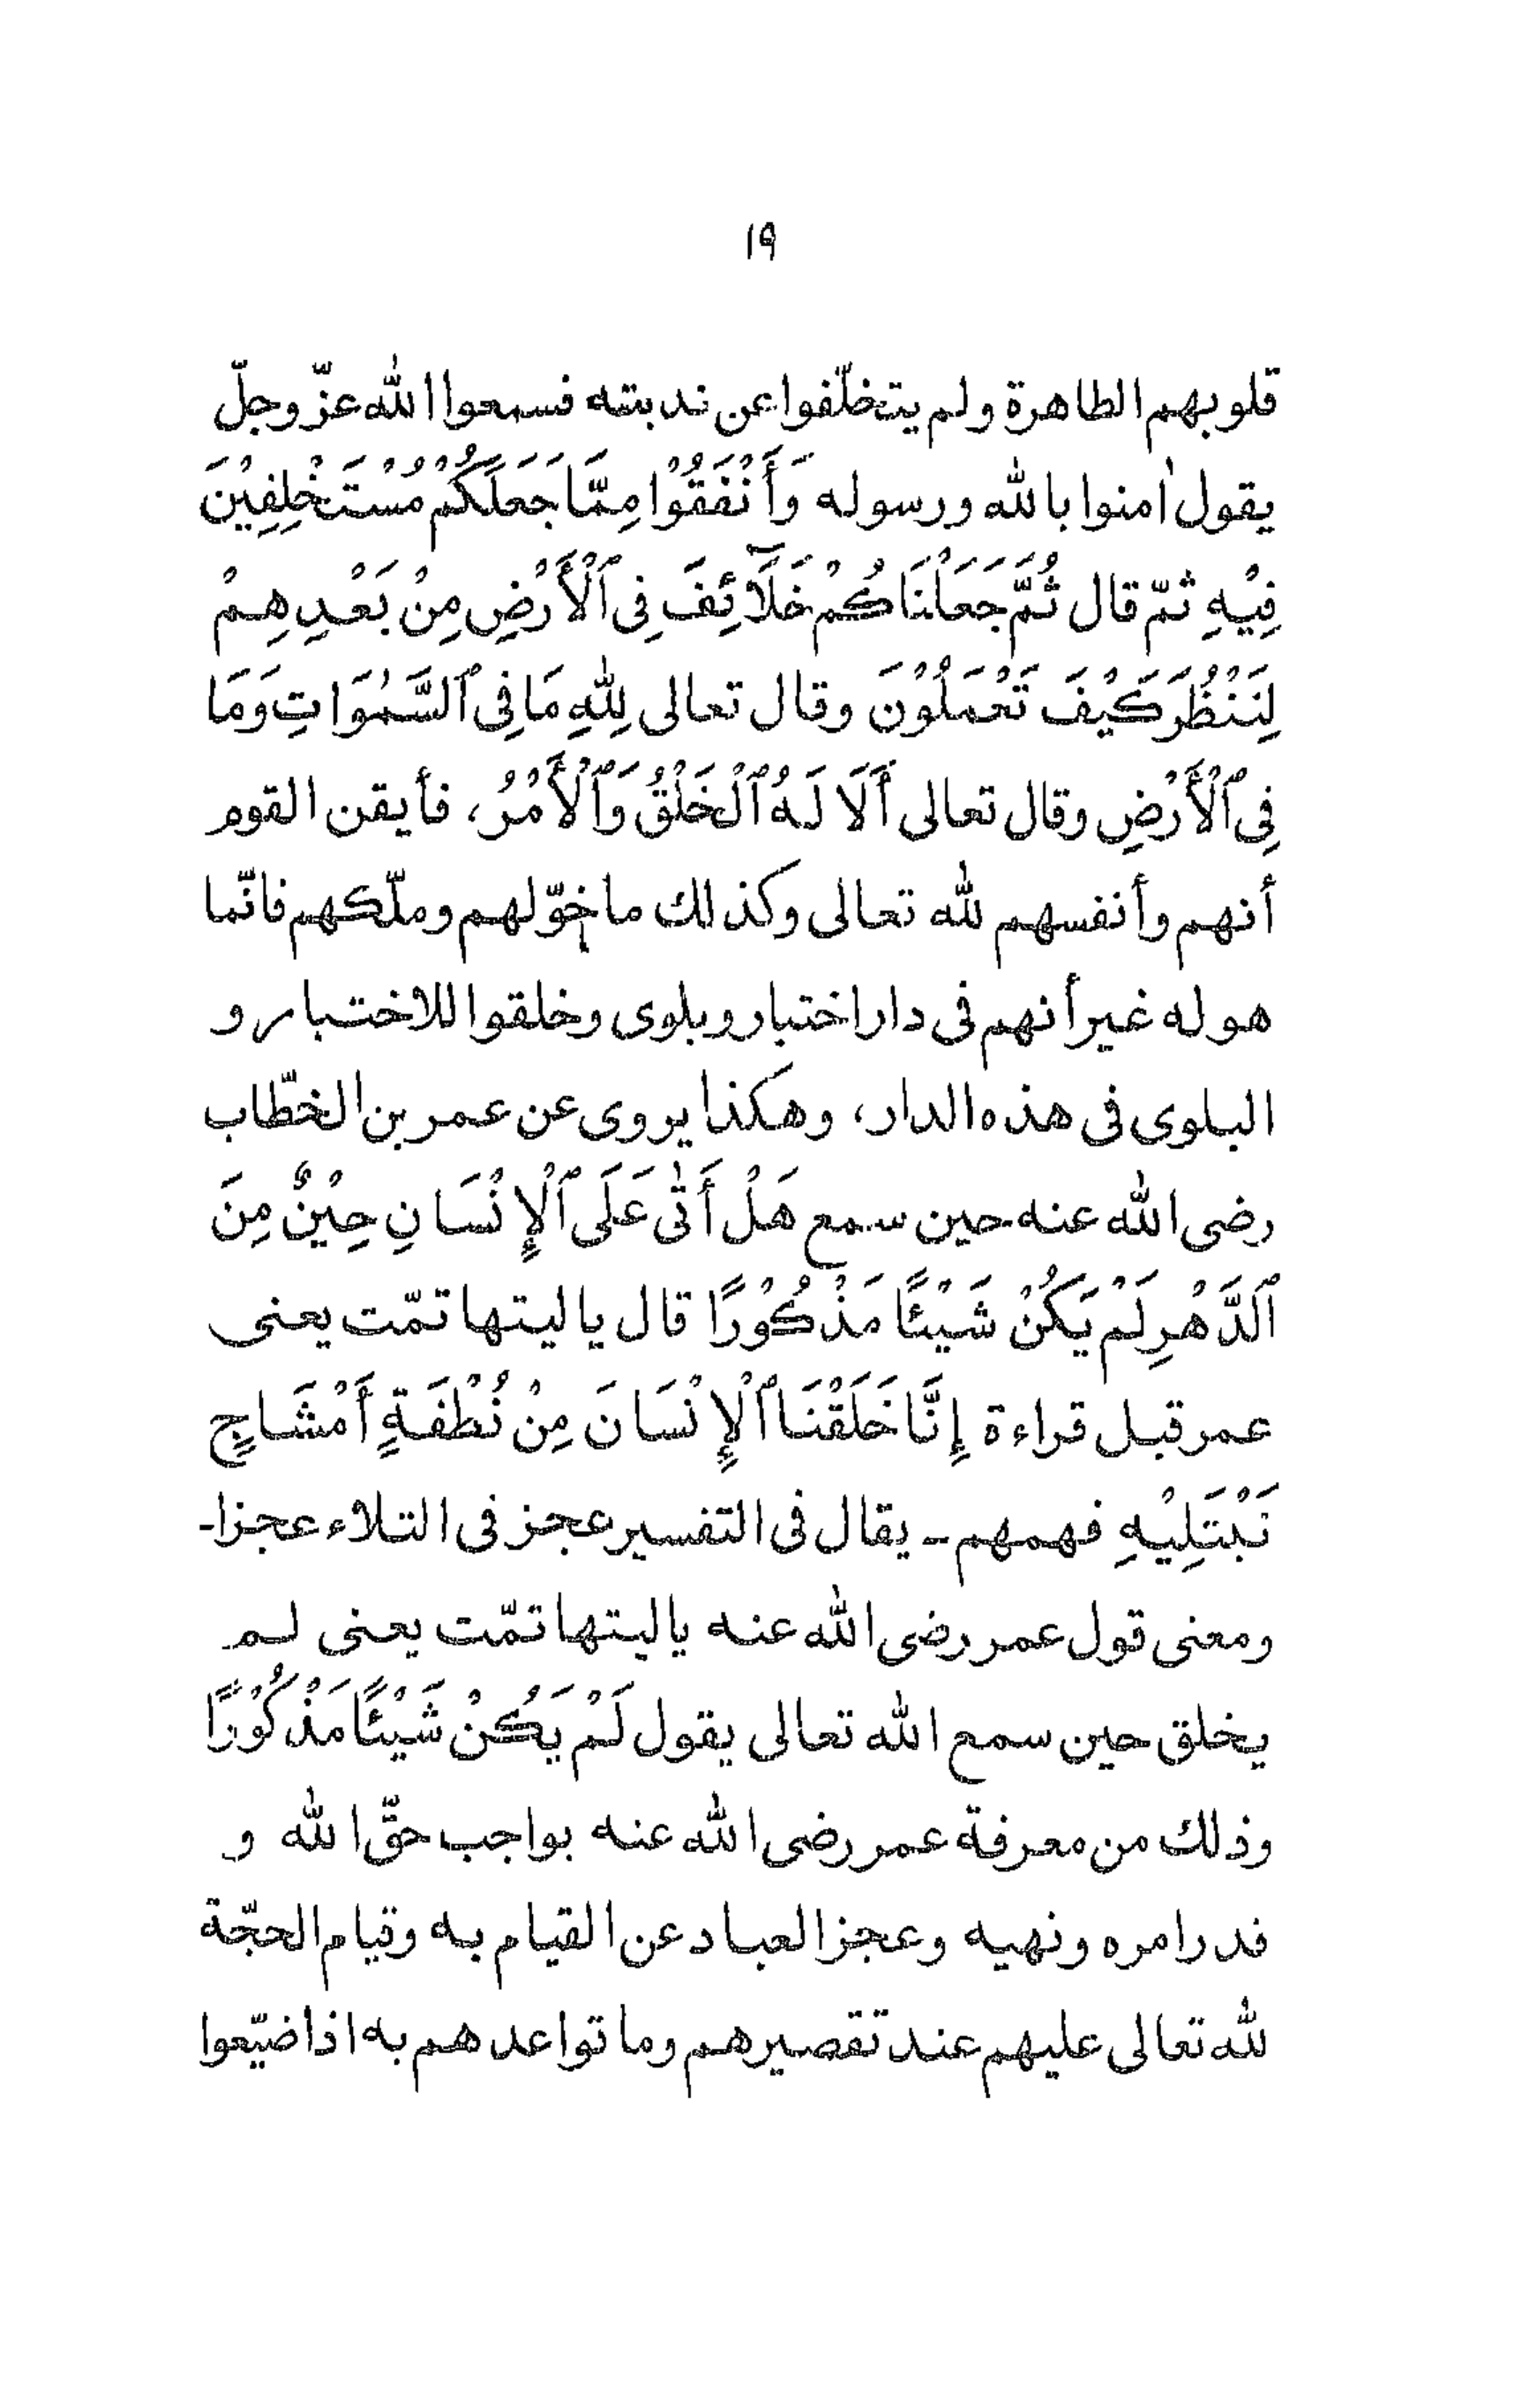 ١٩
قلوبهم الطاهرة ولم يتخلّفوا عن ندبته فسمعوا الله عزّ وجلّ
يقول اٰمنوا بالله ورسوله وَأَنْفَقُوْا مِمَّا جَعَلَكُمْ مُسْتَخْلِفِيْنَ
فِيْهِ ثمّ قال ثُمَّ جَعَلْنَاكُمْ خَلَآئِفَ فِى ٱلْأَرْضِ مِنْ بَعْدِهِمْ
لِنَنْظُرَ كَيْفَ تَعْمَلُوْنَ وقال تعالى لِلّٰهِ مَا فِى ٱلسَّمٰوَاتِ وَمَا
فِى ٱلْأَرْضِ وقال تعالى أَلَا لَهُ ٱلْخَلْقُ وَٱلْأَمْرُ، فأيقن القوم
أنهم وأنفسهم لله تعالى وكذلك ما خوّلهم وملّكهم فانّما
هو له غير أنهم فى دار اختبار وبلوى وخلقوا للاختبار و
البلوى فى هذه الدار، وهكذا يروى عن عمر بن الخطّاب
رضى الله عنه حين سمع هَلْ أَتٰى عَلَى ٱلْإِنْسَانِ حِيْنٌ مِنَ
ٱلدَّهْرِ لَمْ يَكُنْ شَيْئًا مَذْكُوْرًا قال ياليتها تمّت يعنى
عمر قبل قراءة إِنَّا خَلَقْنَا ٱلْإِنْسَانَ مِنْ نُطْفَةٍ أَمْشَاجٍ
نَبْتَلِيْهِ فهمهم - يقال فى التفسير عجز فى التلاء عجزا -
ومعنى قول عمر رضى الله عنه ياليتها تمّت يعنى لم
يخلق حين سمع الله تعالى يقول لَمْ يَكُنْ شَيْئًا مَذْكُوْرًا
وذلك من معرفة عمر رضى الله عنه بواجب حقّ الله و
قدر امره ونهيه وعجز العباد عن القيام به وقيام الحجّة
لله تعالى عليهم عند تقصيرهم وما تواعدهم به اذا ضيّعوا